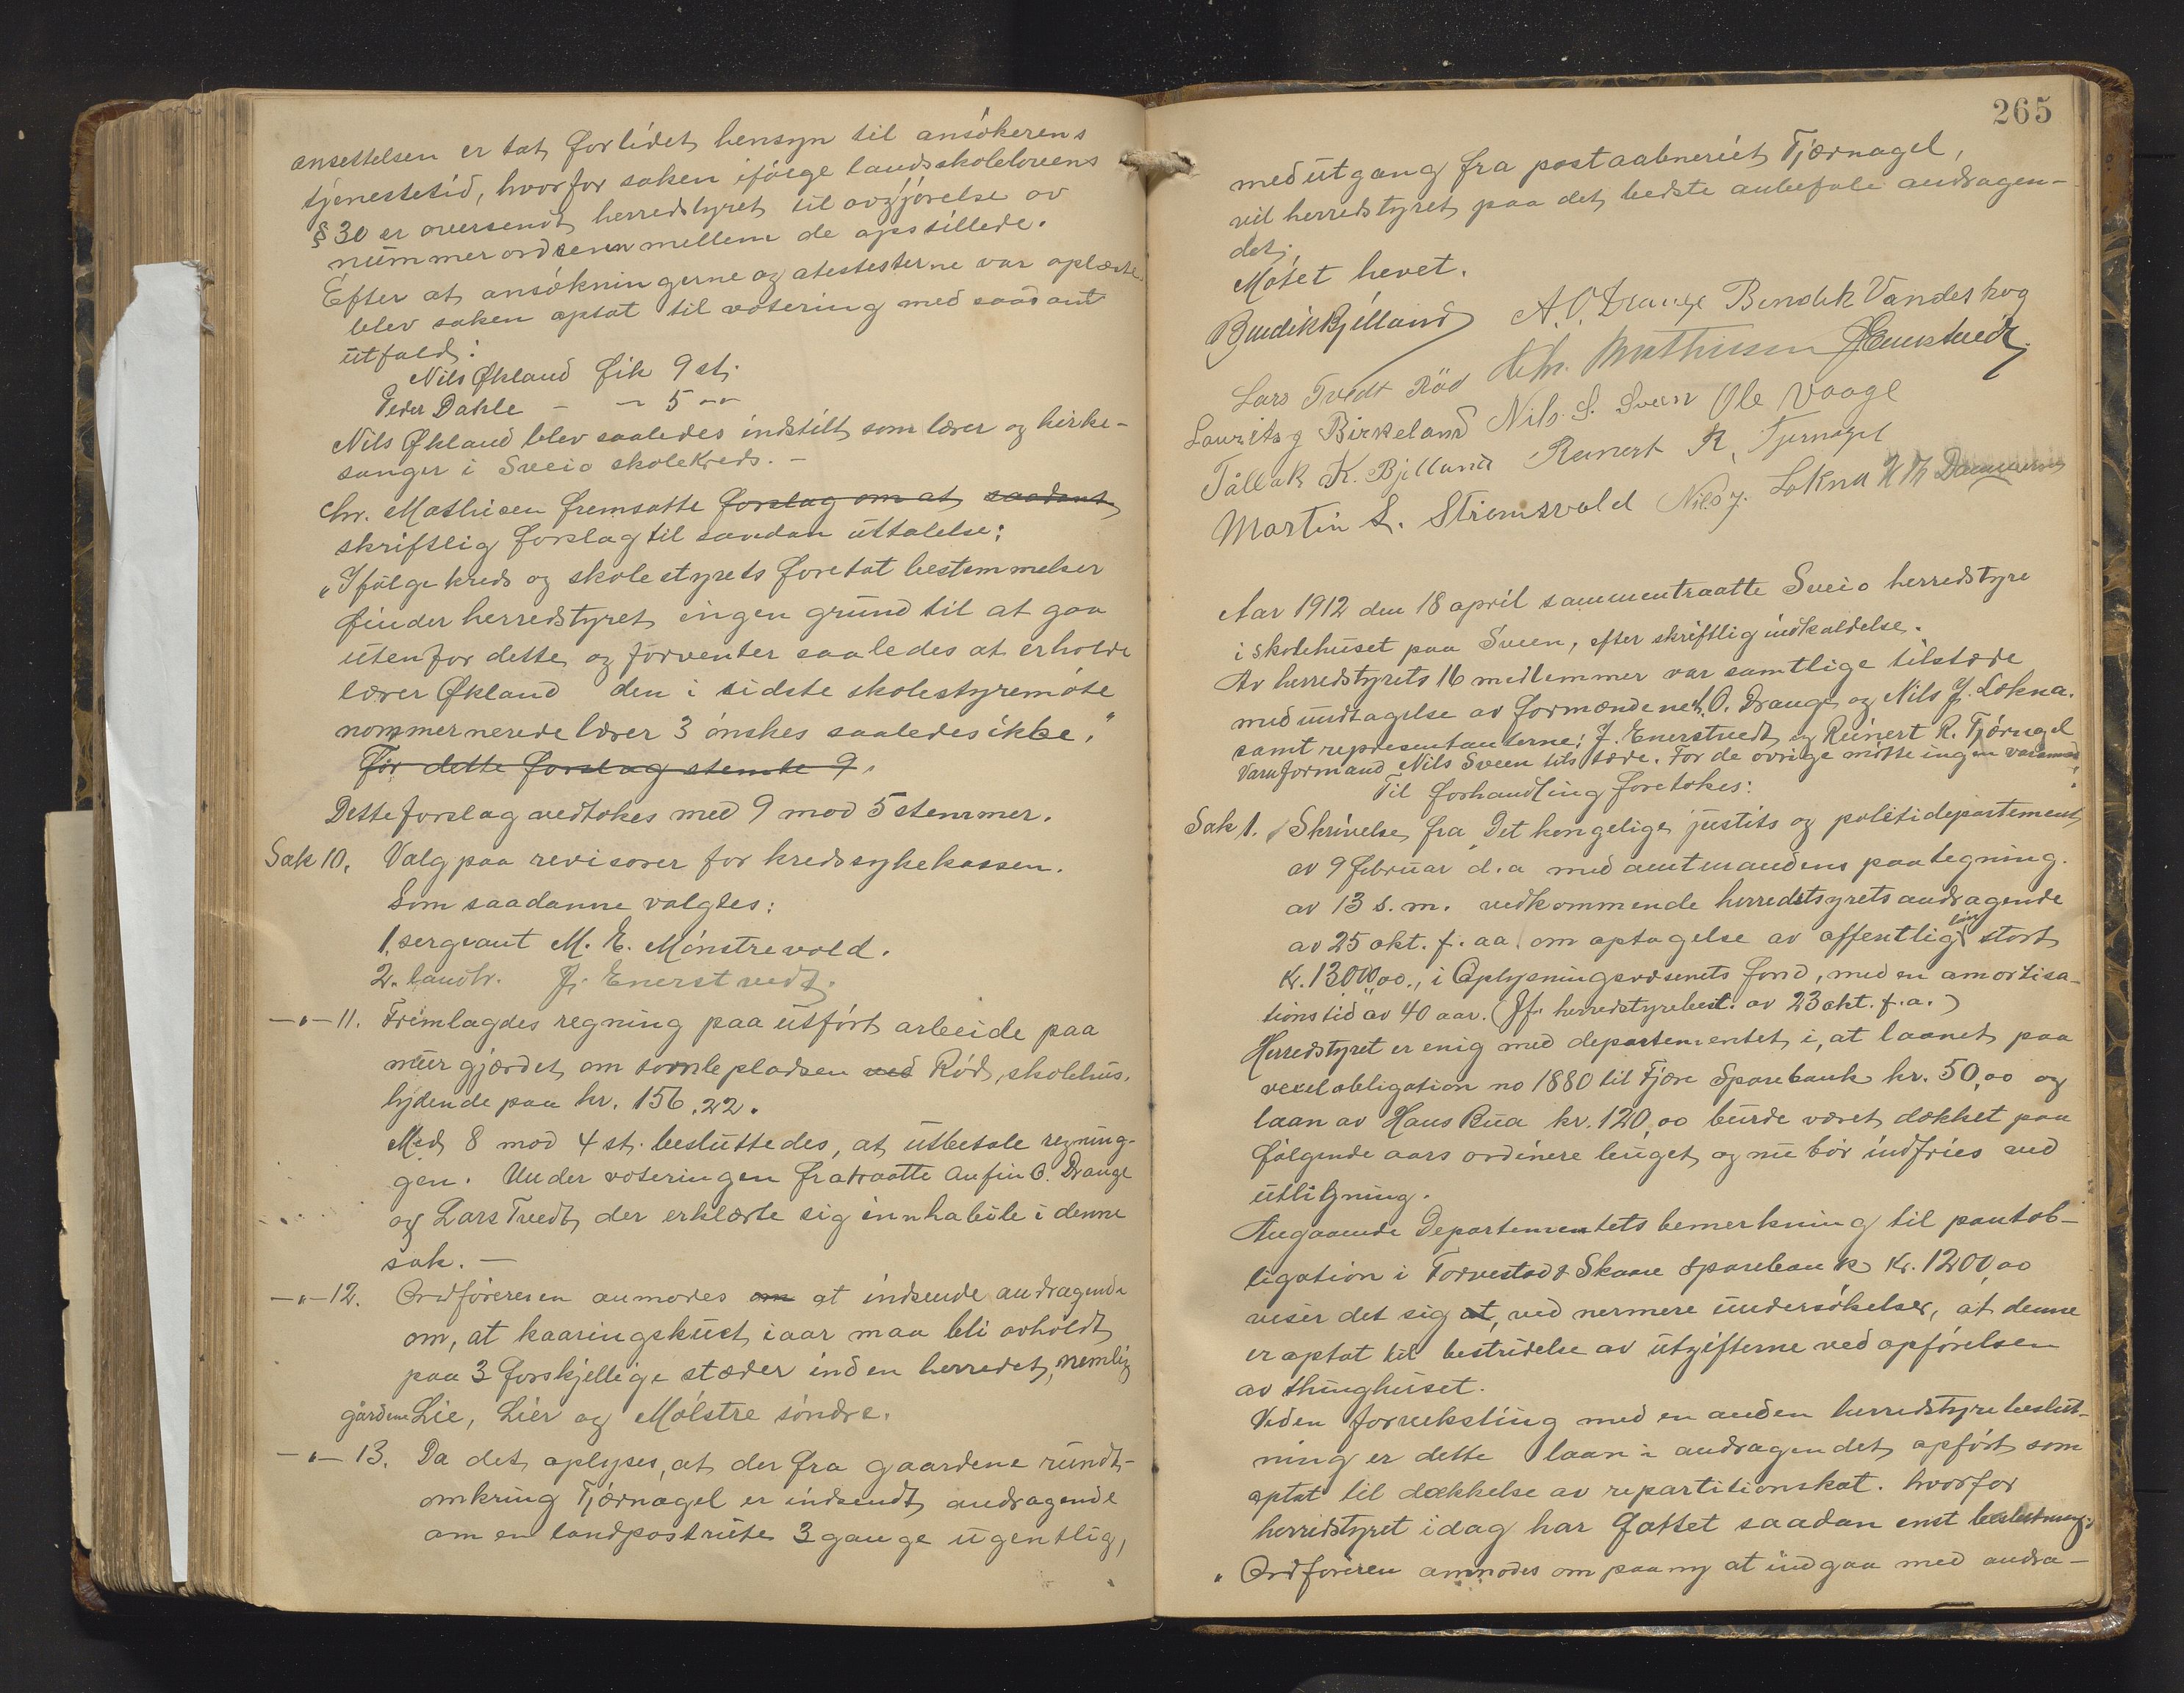 ansettelsen er tat forlidet hensyn til ansökerens
tjenestetid, hvorfor saken ifölge landsskoleloven
§ 30 er oversendt herredstyret til avgjörelse av
nummerordrenen mellem de opstillede.
Efter at ansökningerne og atestesterne var oplæste
blev saken optat til votering med saadant
utfald:
Nils Økland fik 9 st.
Peder Dahle - - 5 -
Nils Økland blev saaledes indstilt som lærer og kirke-
sanger i Sveio skolekreds. -
Chr. Mathisen fremsatte forslag om at saadant
skriftlig forslag til saadan uttalelse:
"Ifølge kreds og skolestyrets foretat bestemmelser
finder herredstyret ingen grund til at gaa
utenfor dette og forventer saaledes at erholde
lærer Økland den i sidste skolestyremöte
nommernerede lærer 3 önskes saaledes ikke."
For dette forslag stemte 9.
Dette forslag vedtokes med 9 mod 5 stemmer.
Sak 10. Valg paa revisorer for kredssykekassen.
Som saadanne valgtes:
1. sergeant M. E. Mönstrevold.
2. landh. J. Enerstvedt.
-"- 11. Fremlagdes regning paa utfört arbeide paa
murgjærdet om somlepladsen ved Röd skolehus,
lydende paa kr. 156.22.
Med 8 mod 4 st. besluttedes, at utbetale regning-
gen. Under voteringen fratraatte Anfin O. Drange
og Lars Tvedt, der erklærte sig innhabile i denne
sak. -
-"- 12. Ordföreren anmodes om at indsende andragende
om, at kaaringskuet iaar maa bli avholdt
paa 3 forskjellige stæder inden herredet, nemlig
gårdene Lie, Lier og Mölstre söndre.
-"- 13. Da det oplyses, at der fra gaardene rundt-
omkring Tjærnagel er indsendt andragende
om en landpostrute 3 gange ugentlig,
265
med utgang fra postaabneriet Tjærnagel,
vil herredstyret paa det bedste anbefale andragen-
det.
Mötet hevet.
Bendik Bjelland A. O. Drange Bendik Vandeskog
Lars Tvedt Röd Chr. Mathisen J. Enerstvedt
Laurits J Birkeland Nils S. Sveen Ole Vaage
Tållak K. Bjelland Reinert R. Tjernagel
Martin L. Strömsvold Nils J. Lokna
Aar 1912 den 18 april sammentraatte Sveio herredstyre
i skolehuset paa Sveen, efter skriftlig indkaldelse.
Av herredstyrets 16 medlemmer var samtlige tilstæde
med undtagelse av formændene A. O. Drange og Nils J. Lokna.
samt representanterne: J. Enerstvedt og Reinert R. Tjörnagel
Varaformand Nils Sveen tilstæde. For de övrige mötte ingen varamænd.
Til forhandling foretokes:
Sak 1. Skrivelse fra Det kongelige justits og politidepartement
av 9 februar d.a med amtmandens paategning.
av 13 s.m. vedkommende herredstyrets andragende
av 25 okt. f.aa. om optagelse av offentlig lån stort
kr. 13000,00., i Oplysningsvæsenets fond, med en amortisa-
tionstid av 40 aar. (Jf. herredstyrebesl. av 23 okt. f.a.)
Herredstyret er enig med departementet i, at laanet paa
vexelobligation no 1880 til Fjære Sparebank kr. 50,00 og
laan av Hans Bua kr. 120,00 burde været dækket paa
fölgende aars ordinere buget og nu bör indfries ved
utligning.
Angaaende Departementets bemerkning til pantob-
ligation i Torvestad & Skaare Sparebank kr. 1200,00
viser det sig at, ved nermere undersökelser, at denne
er optat til bestridelse av utgifterne ved opförelsen
av thinghuset.
Ved en forveksling med en anden herredstyrebeslut-
ning er dette laan i andragendet opfört som
optat til dækkelse av repartitionskat. hvorfor
herredstyret idag har fattet saadan enst beslutning:
" Ordföreren anmodes om paany at indgaa med andra-